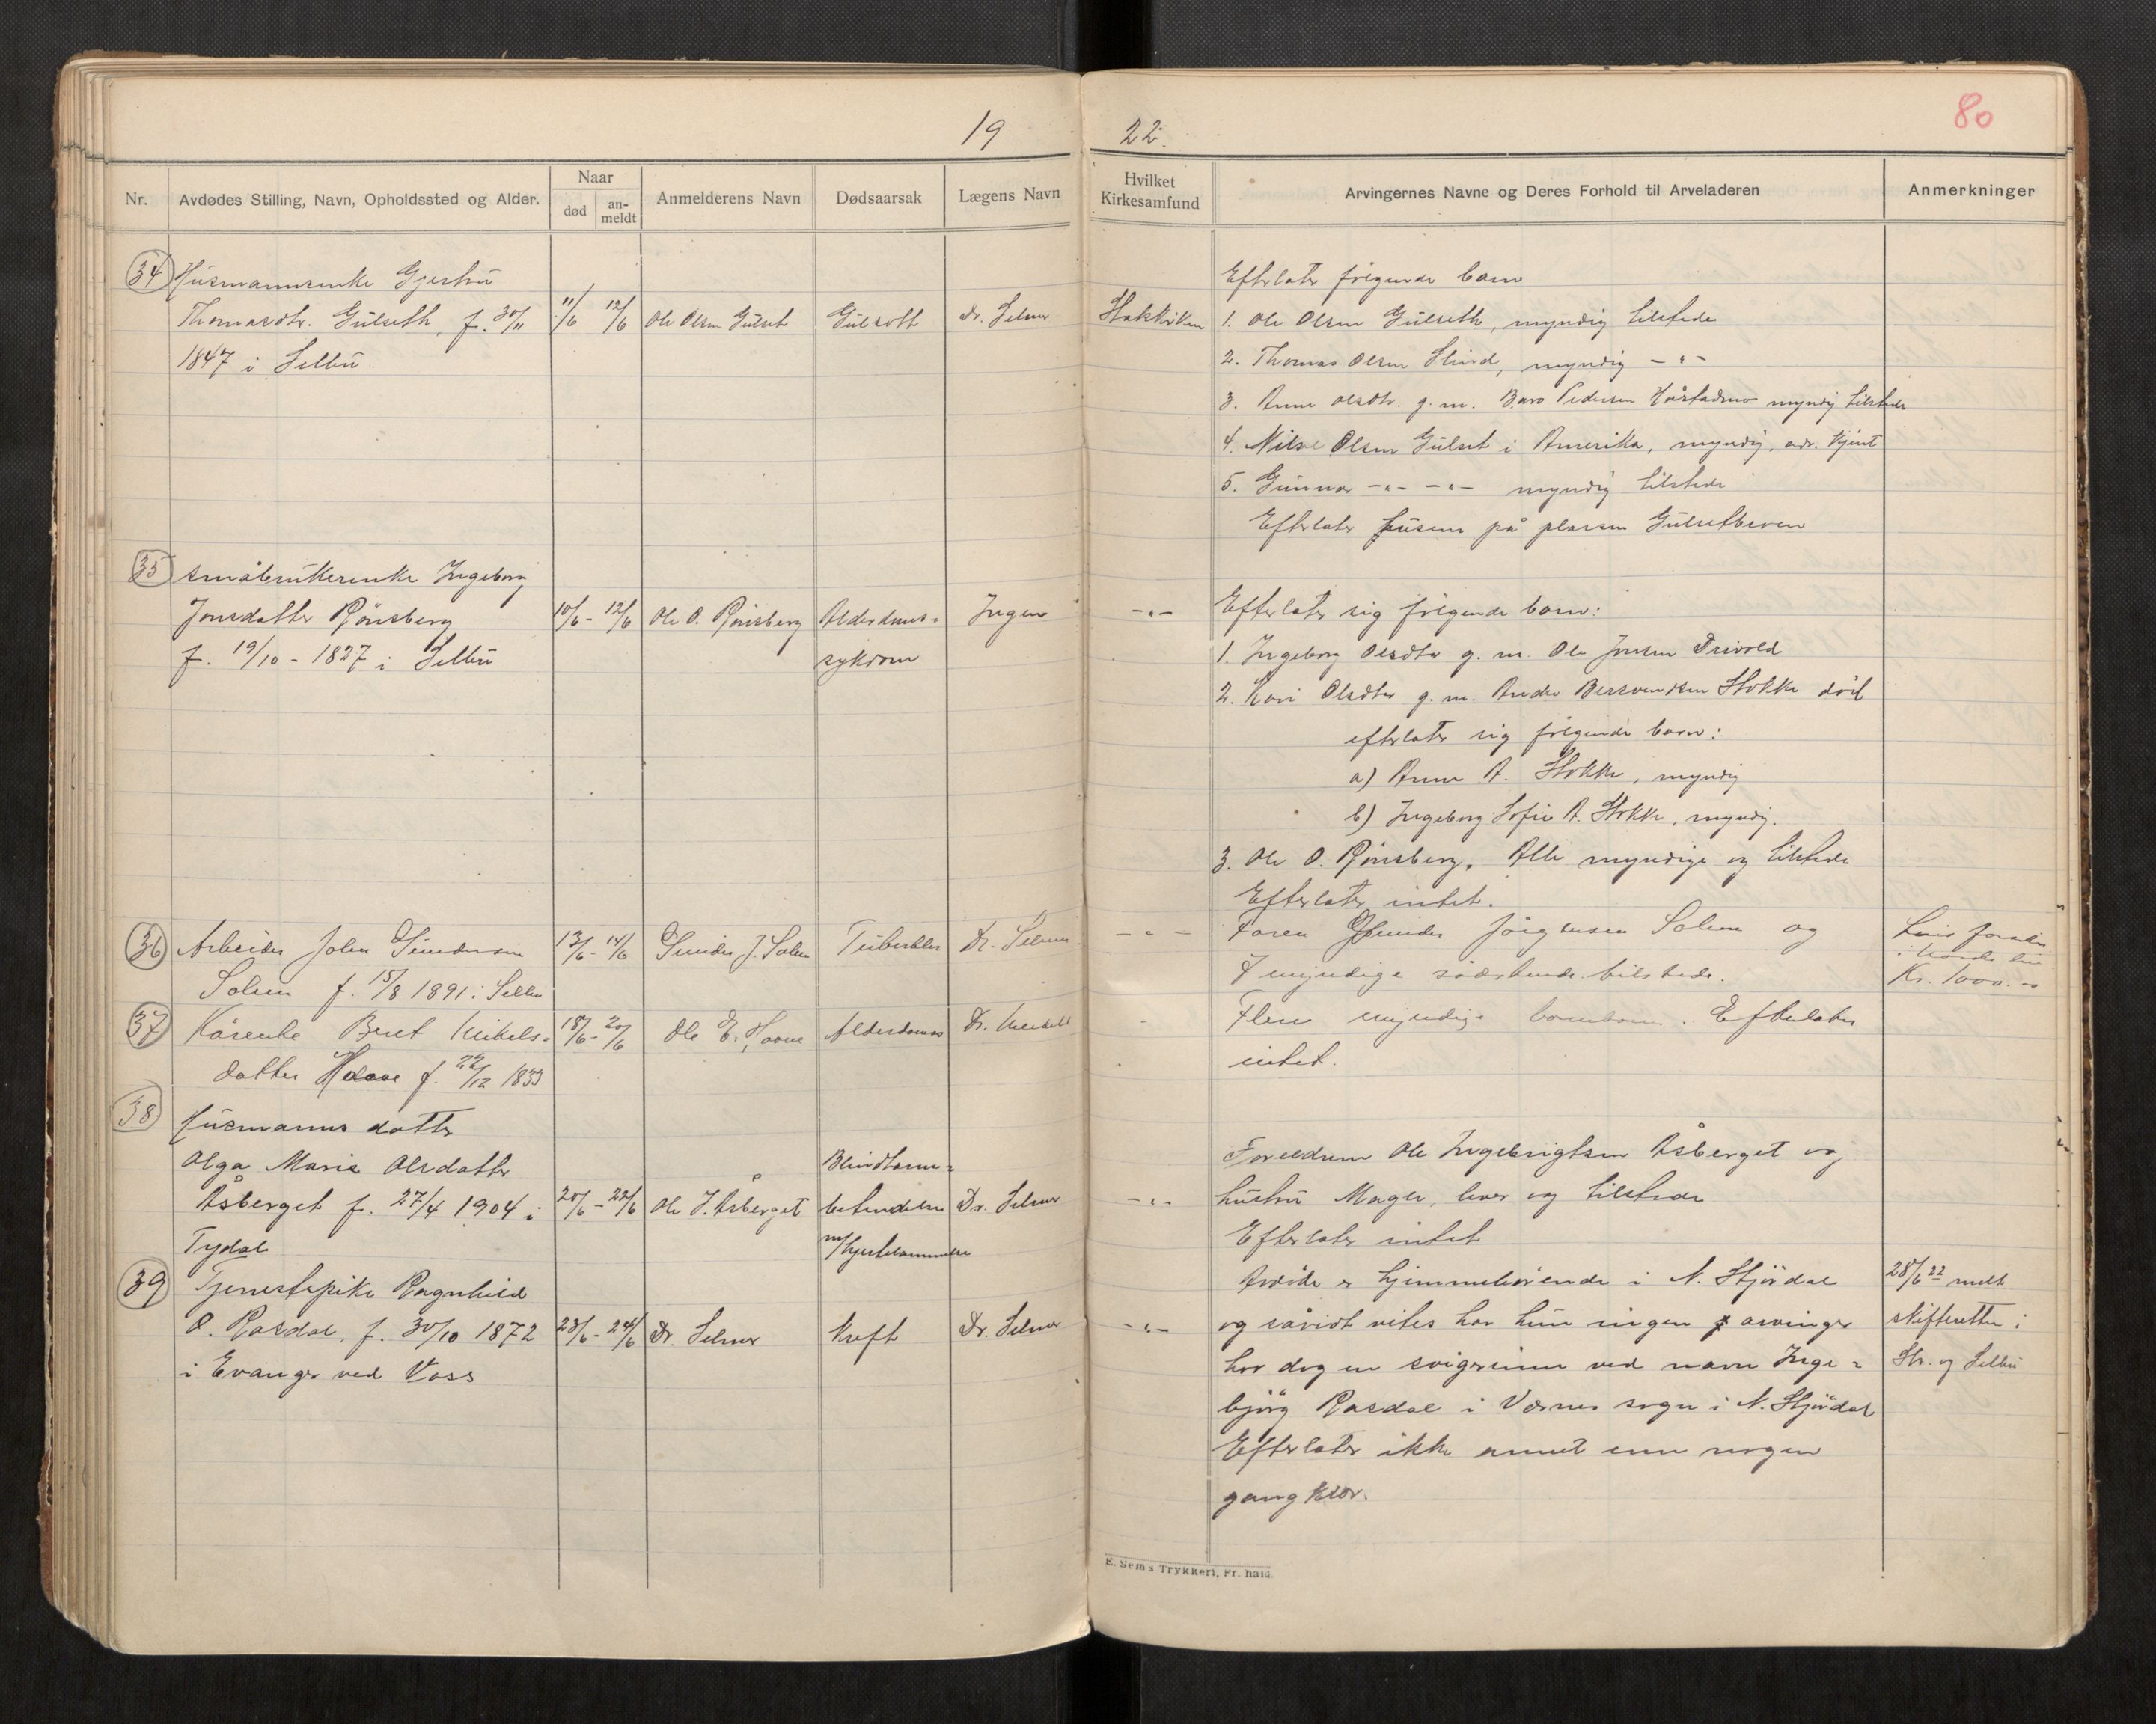 19 22.
80
Nr. Avdødes Stilling, Navn, Opholdssted og Alder. Naar død an-meldt Anmelderens Navn Dødsaarsak Lægens Navn Hvilket Kirkesamfund Arvingernes Navne og Deres Forhold til Arveladeren Anmerkninger
34 Husmannsenke Gjertru
Thomasdtr. Gülseth, f. 30/11 11/6 12/6 Ole Olsen Gülset Gülsott Dr. Selmer Statskirken
1847 i Selbu
Efterlater følgende barn
1. Ole Olsen Gülseth, myndig tilstede
2. Thomas Olsen Slind, myndig - " -
3. Anne Olsdtr. g. m. Baro Pedersen myndig tilstede
4. Nils Olsen Gülset i Amerika, myndig, adr. kjent
5. Gunnar - " - - " - myndig tilstede
Efterlater husene på plassen
35 Småbrukerenke Ingeborg
Jonsdatter Rönsberg 10/6 - 12/6 Ole O. Rönsberg Alderdoms- Ingen - " -
f. 19/10 - 1827 i Selbu sykdom
Efterlater sig følgende barn:
1. Ingeborg Olsdtr g. m. Ole Jonsen Drivold
2. Kari Olsdtr g. m. Anders Bersvendsen Stokke död
efterlater sig følgende barn:
a) Anne A. Stokke, myndig
b) Ingeborg Sofie A. Stokke, myndig.
3. Ole O. Rönsberg. Alle myndige og tilstede
Efterlater intet.
36 Arbeider John Gunderssen 13/6 - 14/6 Gunder J. Solem Tuberkler Dr. Selmer - " -
Solem f. 15/8 1891 i Selbu
Faren Gunder Jörgensen Solem og
7 myndige södskende tilstede.
Kr. 1000.-
37 Kårenke Beret Mikels- 18/6 - 20/6 Ole E. Hoove Alderdoms Dr.
datter f. 22/12 1833
Flere myndige barnebarn. Efterlater
intet.
38 Husmanns datter
Olga Marie Olsdatter Blindtarms-
Åsberget f. 27/4 1904 i 20/6 - 22/6 Ole J. Åsberget betendelse Dr. Selmer - " -
Tydal m/hjertelammelse
Foreldrene Ole Ingebrigtsen Åsberget og
hustru Magli, lever og tilstede
Efterlater intet
39 Tjenestepike Ragnhild
O. Rasdal, f. 30/10 1872 23/6 - 24/6 Dr. Selmer Kreft Dr. Selmer - " -
i Evanger ved Voss
Avdöde er hjemmehörende i N. Stjördal
og såvidt vites har hun ingen arvinger
har dog en svigerinne ved navn Inge-
björg Rasdal i Værnes sogn i N. Stjördal
Efterlater ikke annet enn nogen
gangklær.
28/6 22 meldt
skifteretten i
Str. og Selbu
E. Sem's Trykkeri, Fr.hald.